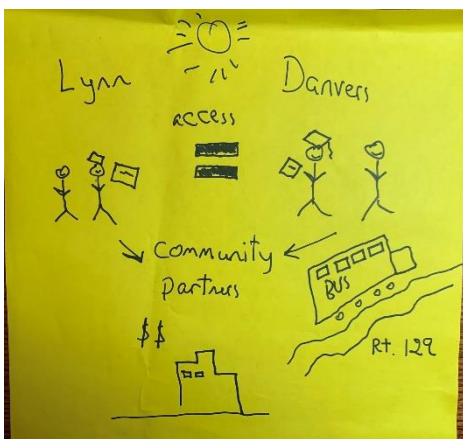 Lynn
Danvers
access
community
partners
BUS
$$
Rt. 129